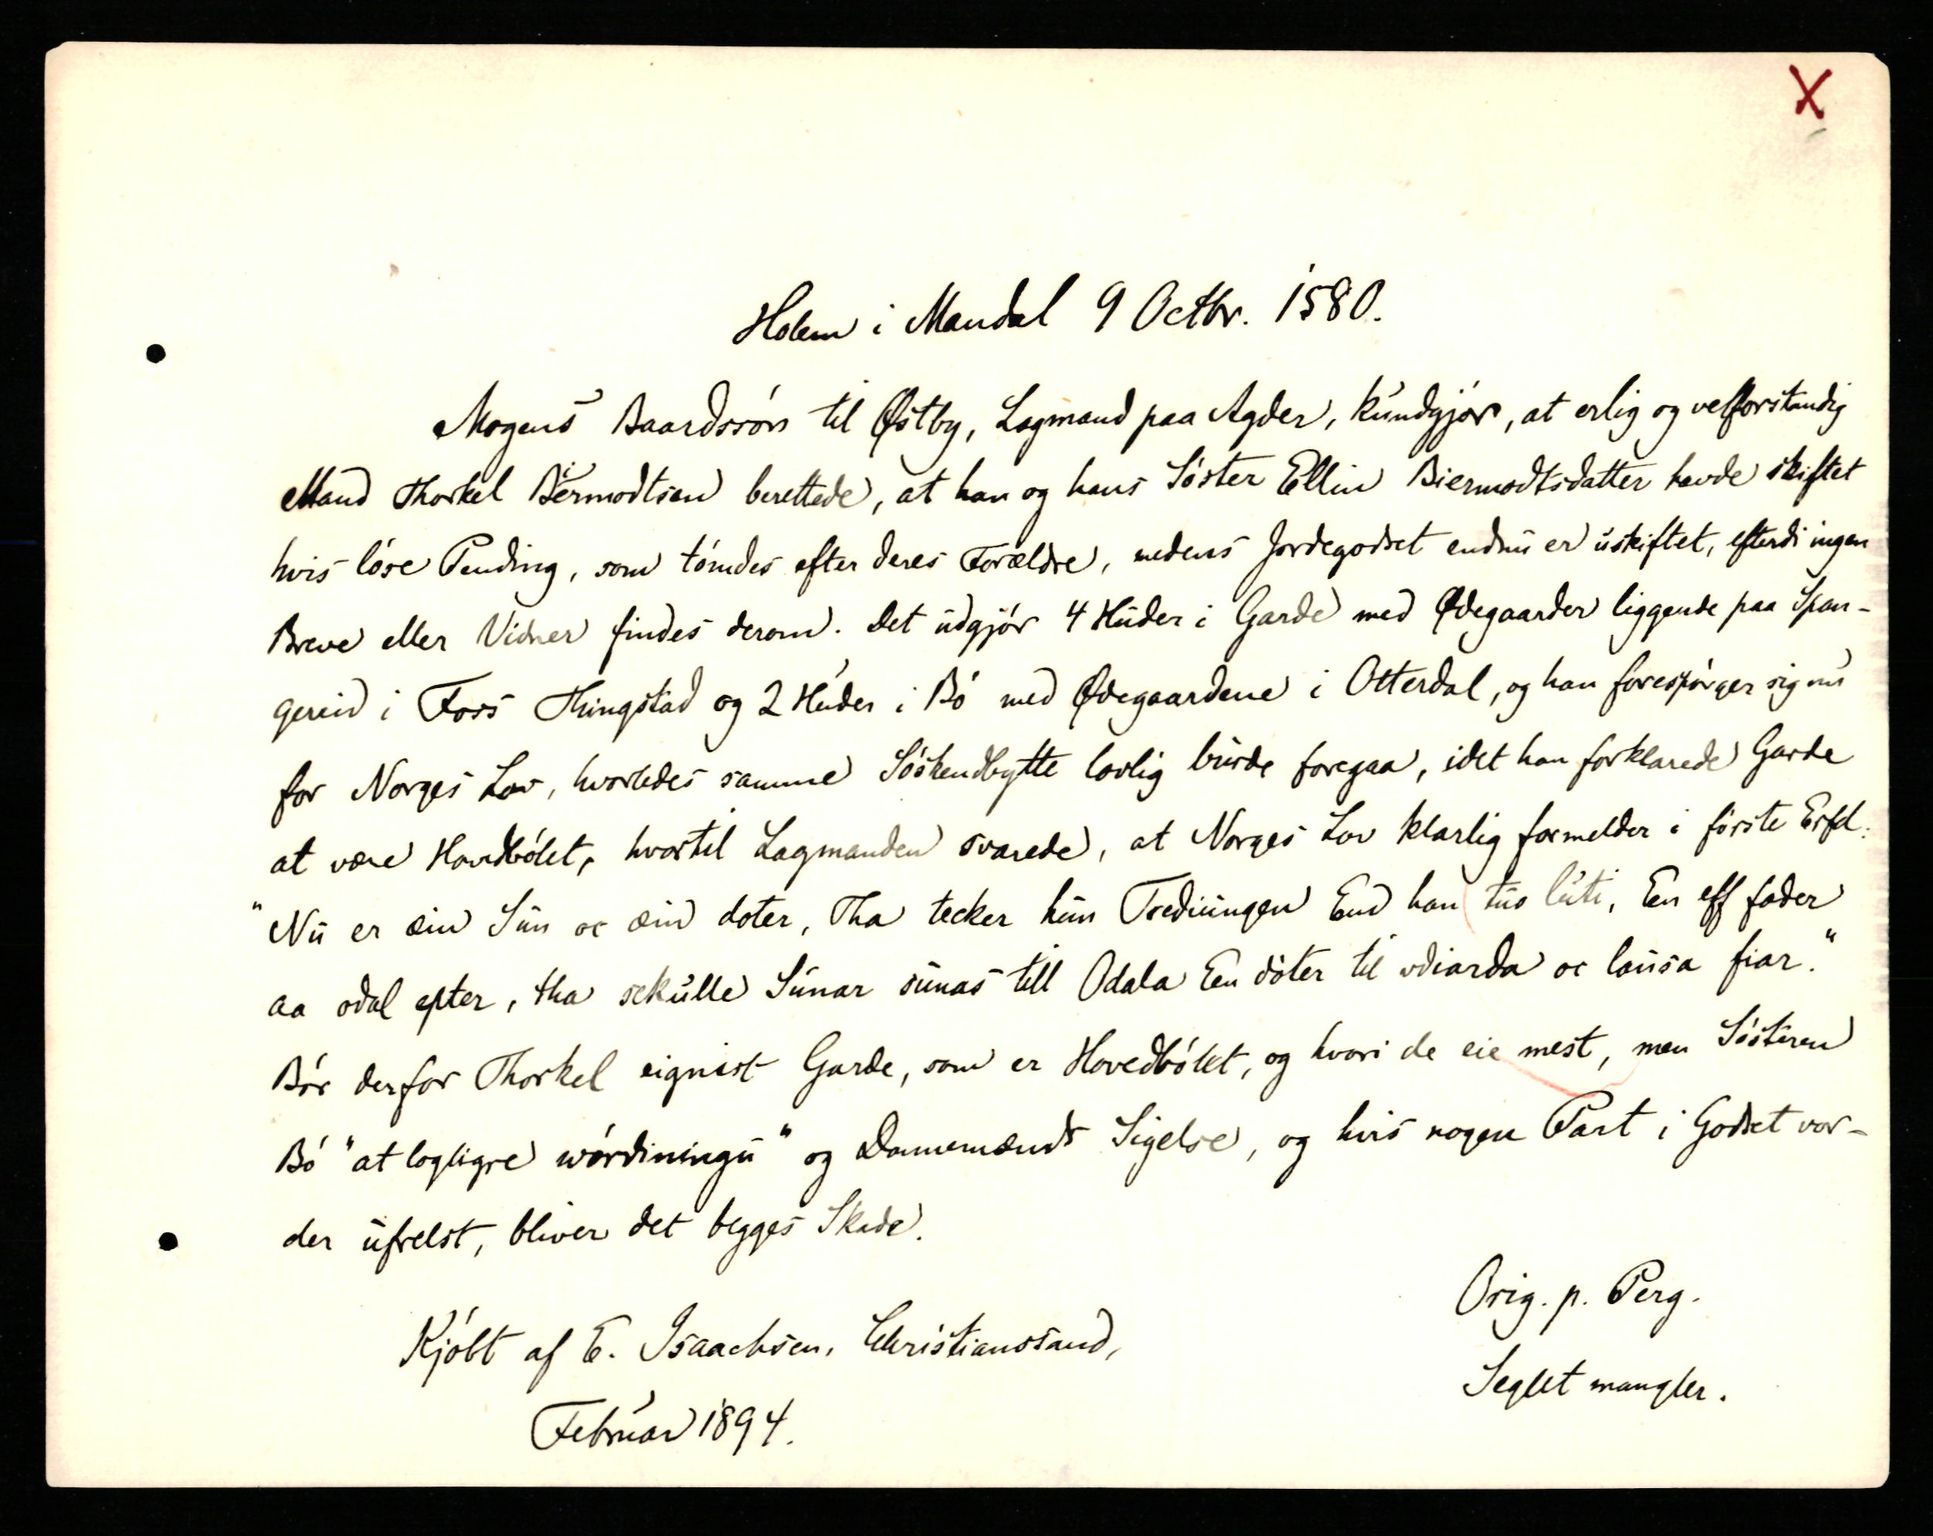 X
Holem i Mandal 9 Octbr. 1580.
Mogens Baardssön til Østby, Lagmand paa Agder, kundgjör, at erlig og velforstandig
Mand Thorkel Bermodtsen berettede, at han og hans Söster Ellin Biermodtsdatter havde skiftet
hvis löse Pending, som tömdes efter deres Forældre, medens Jordegodset endnu er uskiftet, efterdi ingen
Breve eller Vidner findes derom. Det udgjör 4 Huder i Garde med Ødegaarder liggende paa Span-
gereid i Foss Thingstad og 2 Huder i Bö med Ødegaardene i Otterdal, og han forespörger sig nu
for Norges Lov, hvorledes samme Söskendbytte lovlig burde foregaa, idet han forklarede Garde
at være Hovedbölet, hvortil Lagmanden svarede, at Norges Lov klarlig formelder i förste Erfd.
"Nu er æin Sun oc æin doter, Tha tecker hun Trediungen End han tuo luti, En eff fader
aa odal epter, tha sckulle Sunar sunas till Odala Een döter til vdiarda oc lausa fiar."
Bör derfor Thorkel eignist Garde, som er Hovedbölet, og hvori de eie mest, men Sösteren
Bö "at logligre wördiningu" og Dannemænds Sigelse, og hvis nogen Part i Godset vor-
der ufrelst, bliver det begges Skade.
Orig. p. Perg.
Kjöbt af E. Isaachsen, Christianssand,
Seglet mangler.
Februar 1894.